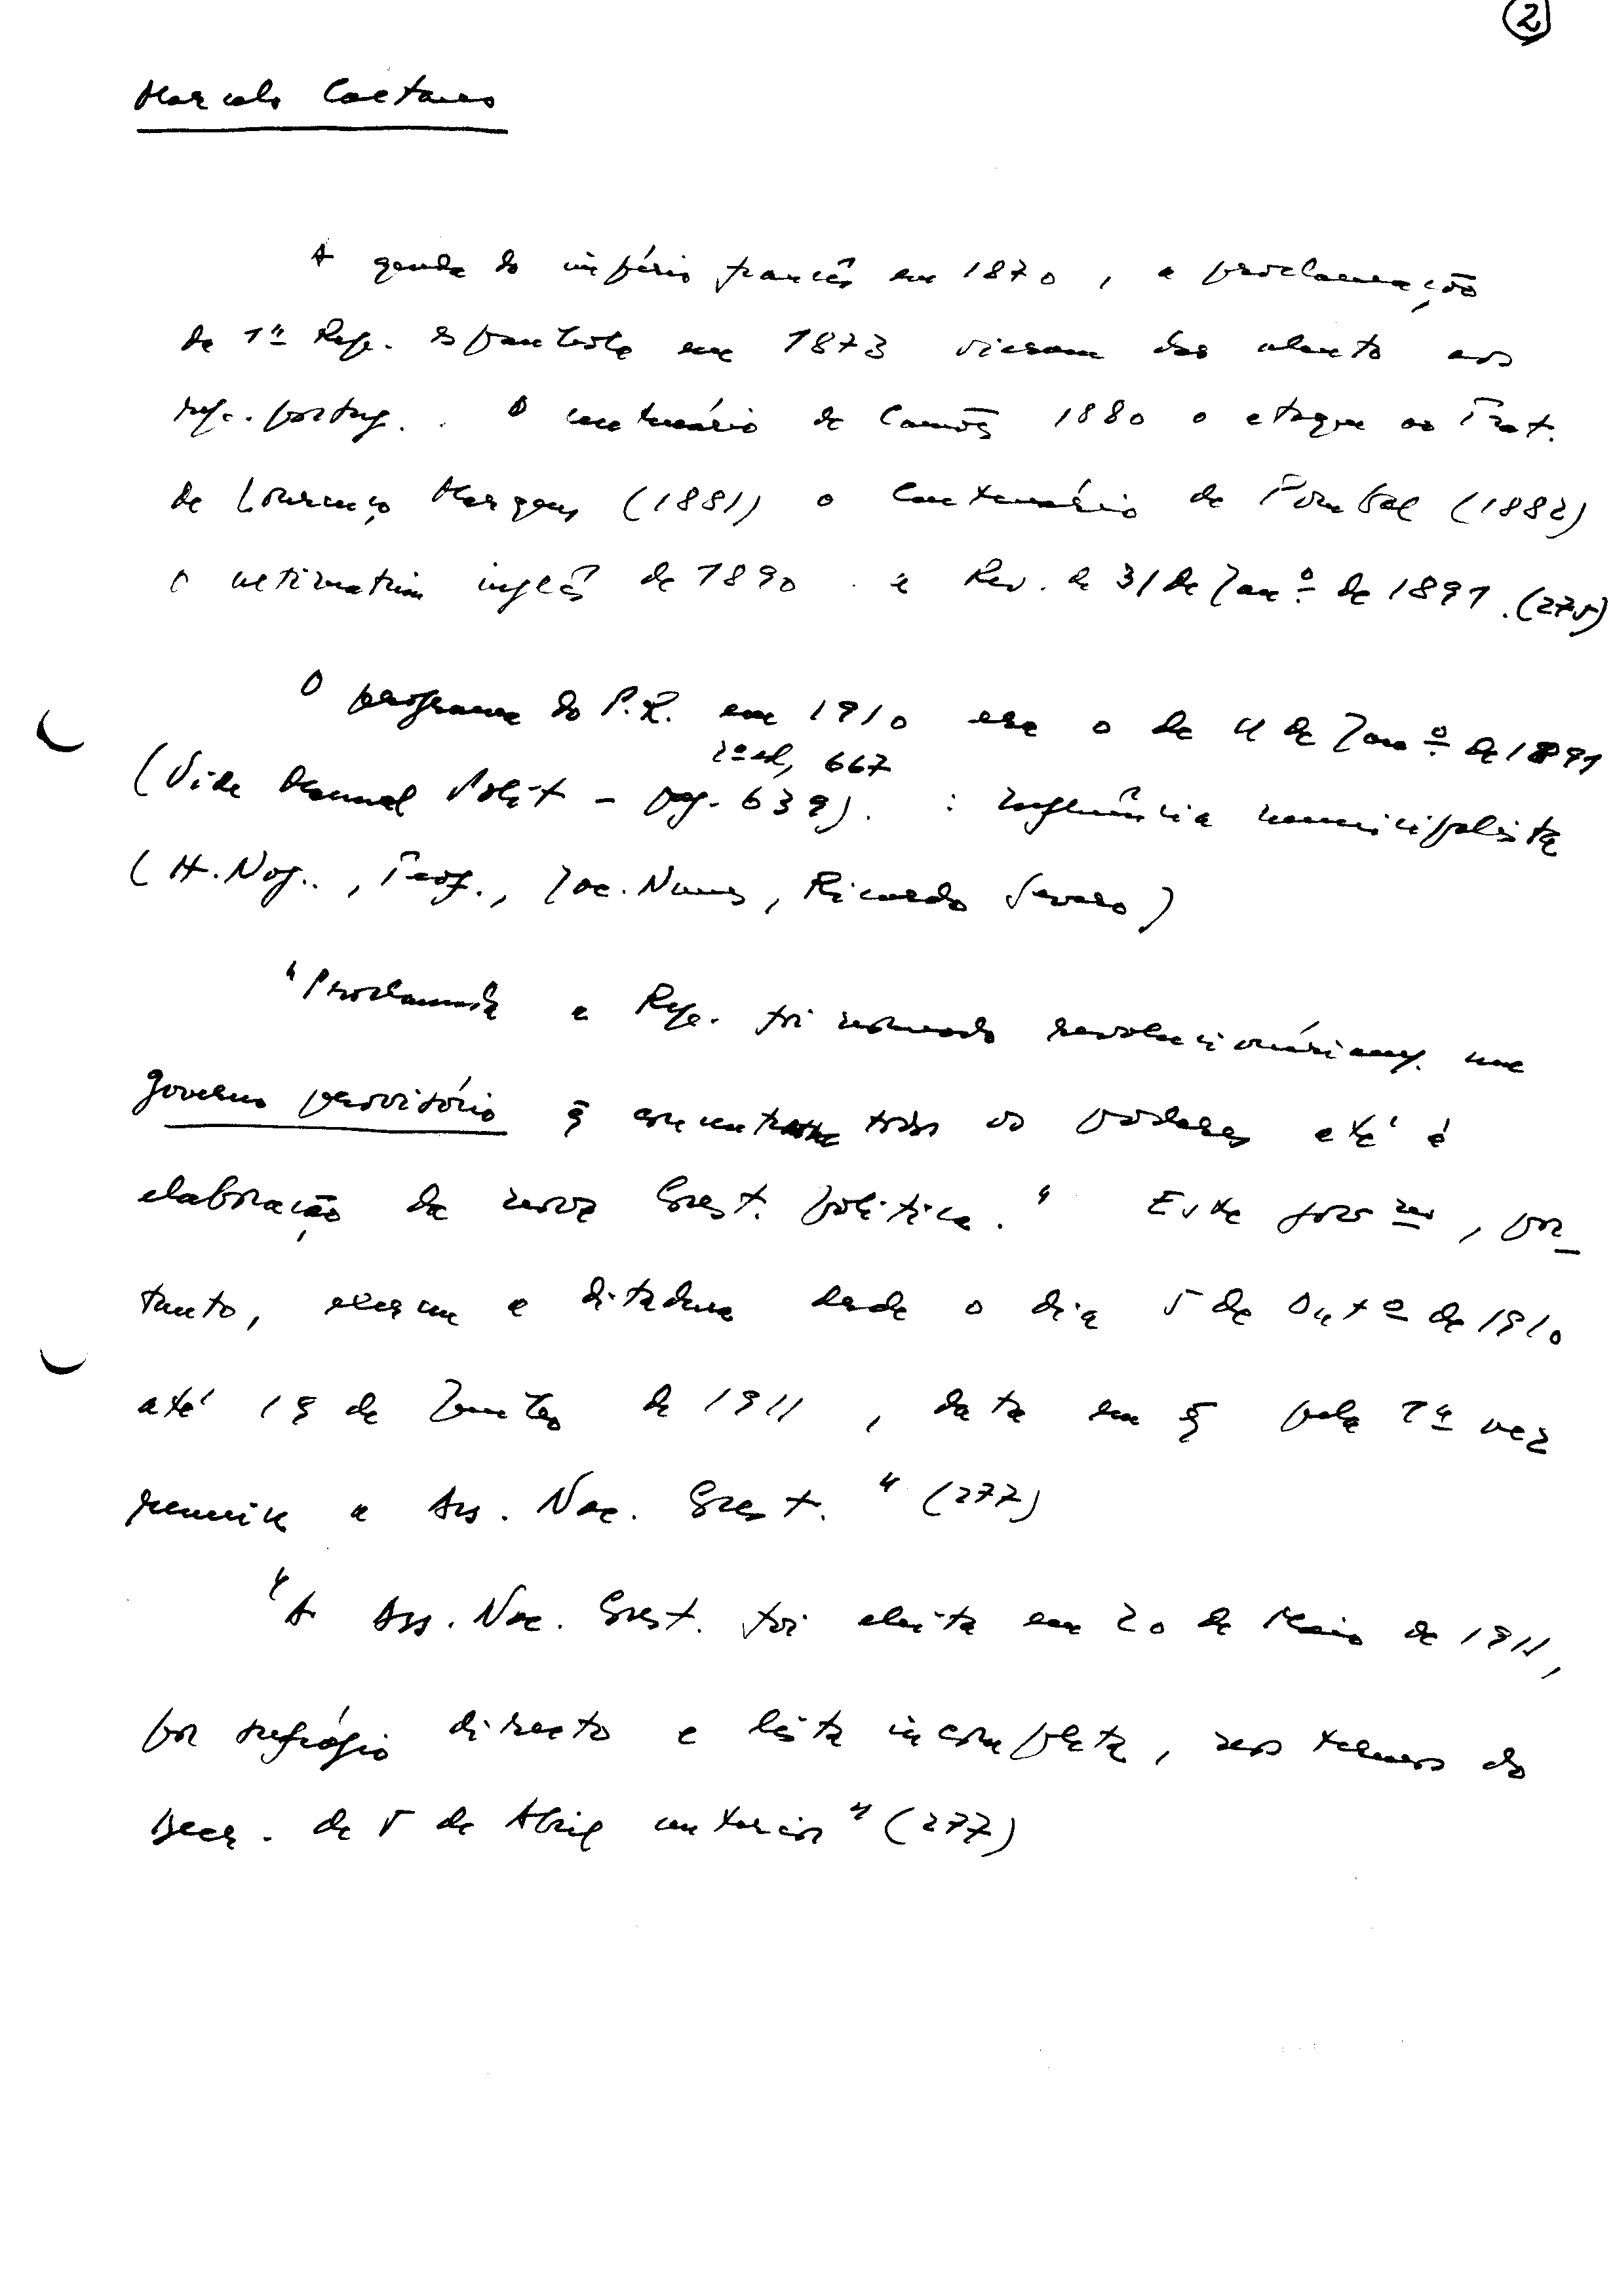 2
Marcelo Caetano
A queda do império francês em 1870, a proclamação
da 1ª Rep. Espanhola em 1873 vieram dar alento aos
rep. portug. . O centenário de Camões 1880 o ataque ao Trat.
de Lourenço Marques (1881) o Centenário de Pombal (1882)
o ultimatum inglês de 1890 . a Rev. de 31 de Janº de 1891. (275)
O programa do P.R. em 1910 era o de 11 de Janº de 1891
2ª ed, 667
(Vide Manual Polit - pag. 639). : influência municipalista
(H. Nog.., Teof., Jac. Nunes, Ricardo Severo)
"Proclamada a Rep. foi nomeado revolucionáriamₑ. um
governo provisório q̃ concentrasse todos os poderes até à
elaboração da nova Const. política." Este govᵉʳⁿᵒ, por-
tanto, exerceu a ditadura desde o dia 5 de Outº de 1910
até 19 de Junho de 1911, data em q̃ pela 1ª vez
reuniu a Ass. Nac. Const. " (277)
"A Ass. Nac. Const. foi eleita em 20 de Maio de 1911,
por sufrágio directo e lista incompleta, nos termos do
Decr. de 5 de Abril anterior" (277)